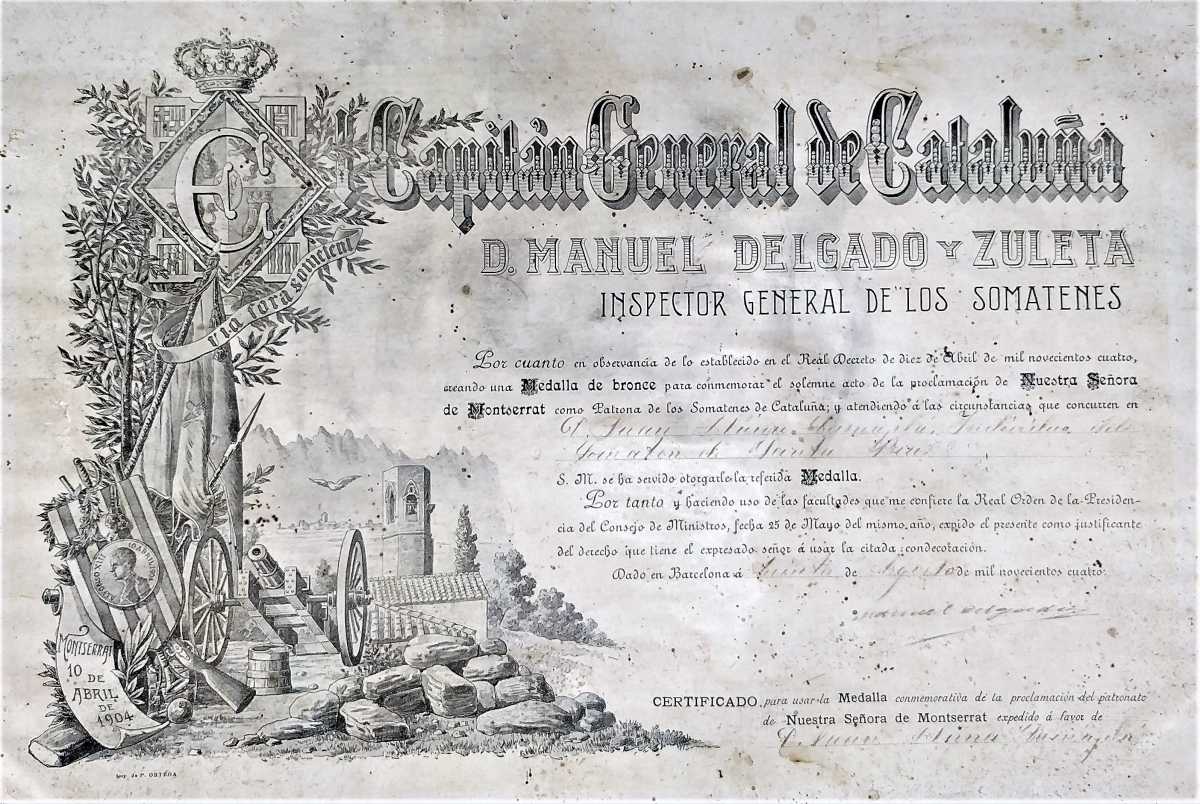 El Capitán General de Cataluña
D. MANUEL DELGADO Y ZULETA
INSPECTOR GENERAL DE LOS SOMATENES
via fora somatent
Por cuanto en observancia de lo establecido en el Real Decreto de diez de Abril de mil novecientos cuatro,
creando una Medalla de bronce para conmemorar el solemne acto de la proclamación de Nuestra Señora
de Montserrat como Patrona de los Somatenes de Cataluña; y atendiendo á las circunstancias que concurren en
D. Juan
Somatén de Santa
S. M. se ha servido otorgarle la referida Medalla.
Por tanto y haciendo uso de las facultades que me confiere la Real Orden de la Presiden-
cia del Consejo de Ministros, fecha 25 de Mayo del mismo año, expido el presente como justificante
del derecho que tiene el expresado señor á usar la citada condecoración.
Dado en Barcelona á treinta de Agosto de mil novecientos cuatro.
Manuel Delgado
MONTSERRAT
10
DE
ABRIL
DE
1904
CERTIFICADO para usar la Medalla conmemorativa de la proclamación del patronato
de Nuestra Señora de Montserrat expedido á favor de
D. Juan
Imp. de P. ORTEGA